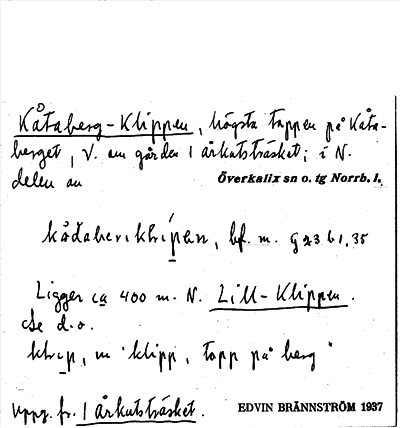 Kåtaberg-Klippen, högsta toppen på Kåta-
berget, V. om gården i Årkutsträsket; i N.
delen av Överkalix sn o. tg Norrb. l.
bf. m.
Ligger ca 400 m. N. Lill-Klippen.
Se d.o.
klipp, topp på berg
Uppg. fr. i Årkutsträsket. EDVIN BRÄNNSTRÖM 1937